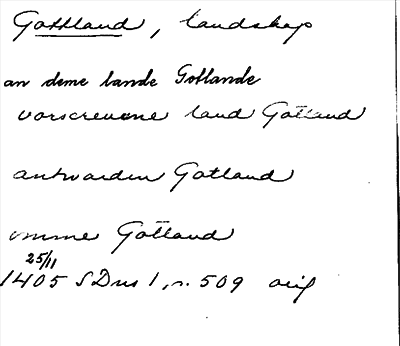 Gottland, landskap
an deme lande Gotlande
vorscreuene land Gotland
antwarden Gotland
umme Gotland
25/11
1405 SDns 1, n. 509 orig